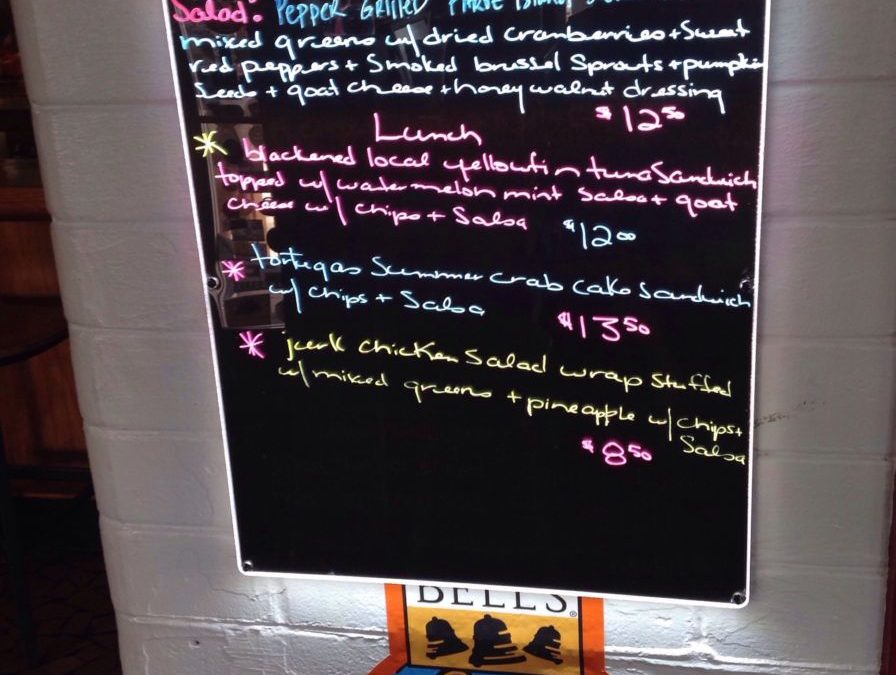 Salad: PEPPER GRILLED
mixed greens w/ dried cranberries + Sweet
red peppers + Smoked brussel Sprouts + pumpkin
Seeds + goat cheese + honey walnut dressing
$12.50
Lunch
* blackened local yellowfin tuna Sandwich
topped w/ watermelon mint Salsa + goat
cheese w/ chips + Salsa
$12.00
* tortugas Summer crab cake Sandwich
w/ chips + Salsa
$13.50
* jerk chicken Salad wrap Stuffed
w/ mixed greens + pineapple w/ chips +
Salsa
$8.50
BELL'S®